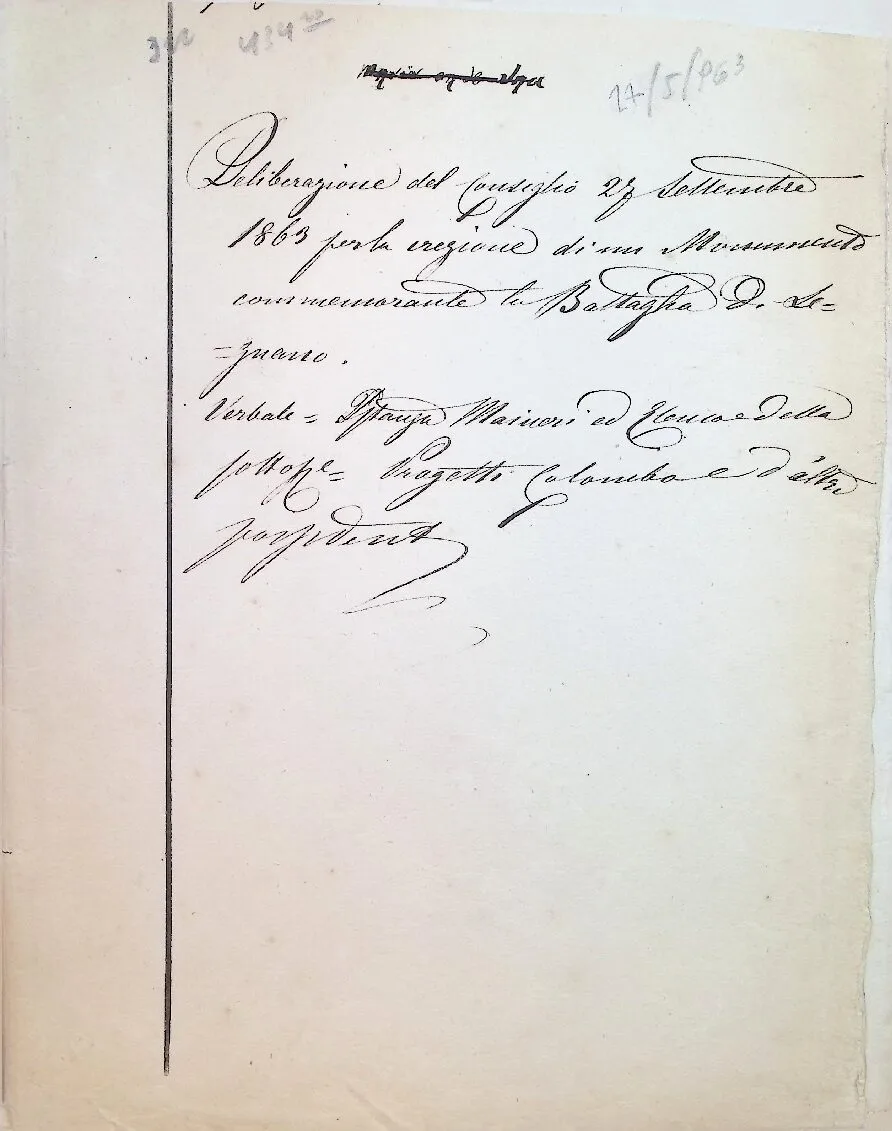 434
27/5/963
Deliberazione del Consiglio 27 Settembre
1863 per la erezione di un Monumento
commemorante la Battaglia di Le=
=gnano.
Verbale = Istanza Maineri ed Elenco della
Progetto Colombo e d'altri
possidenti